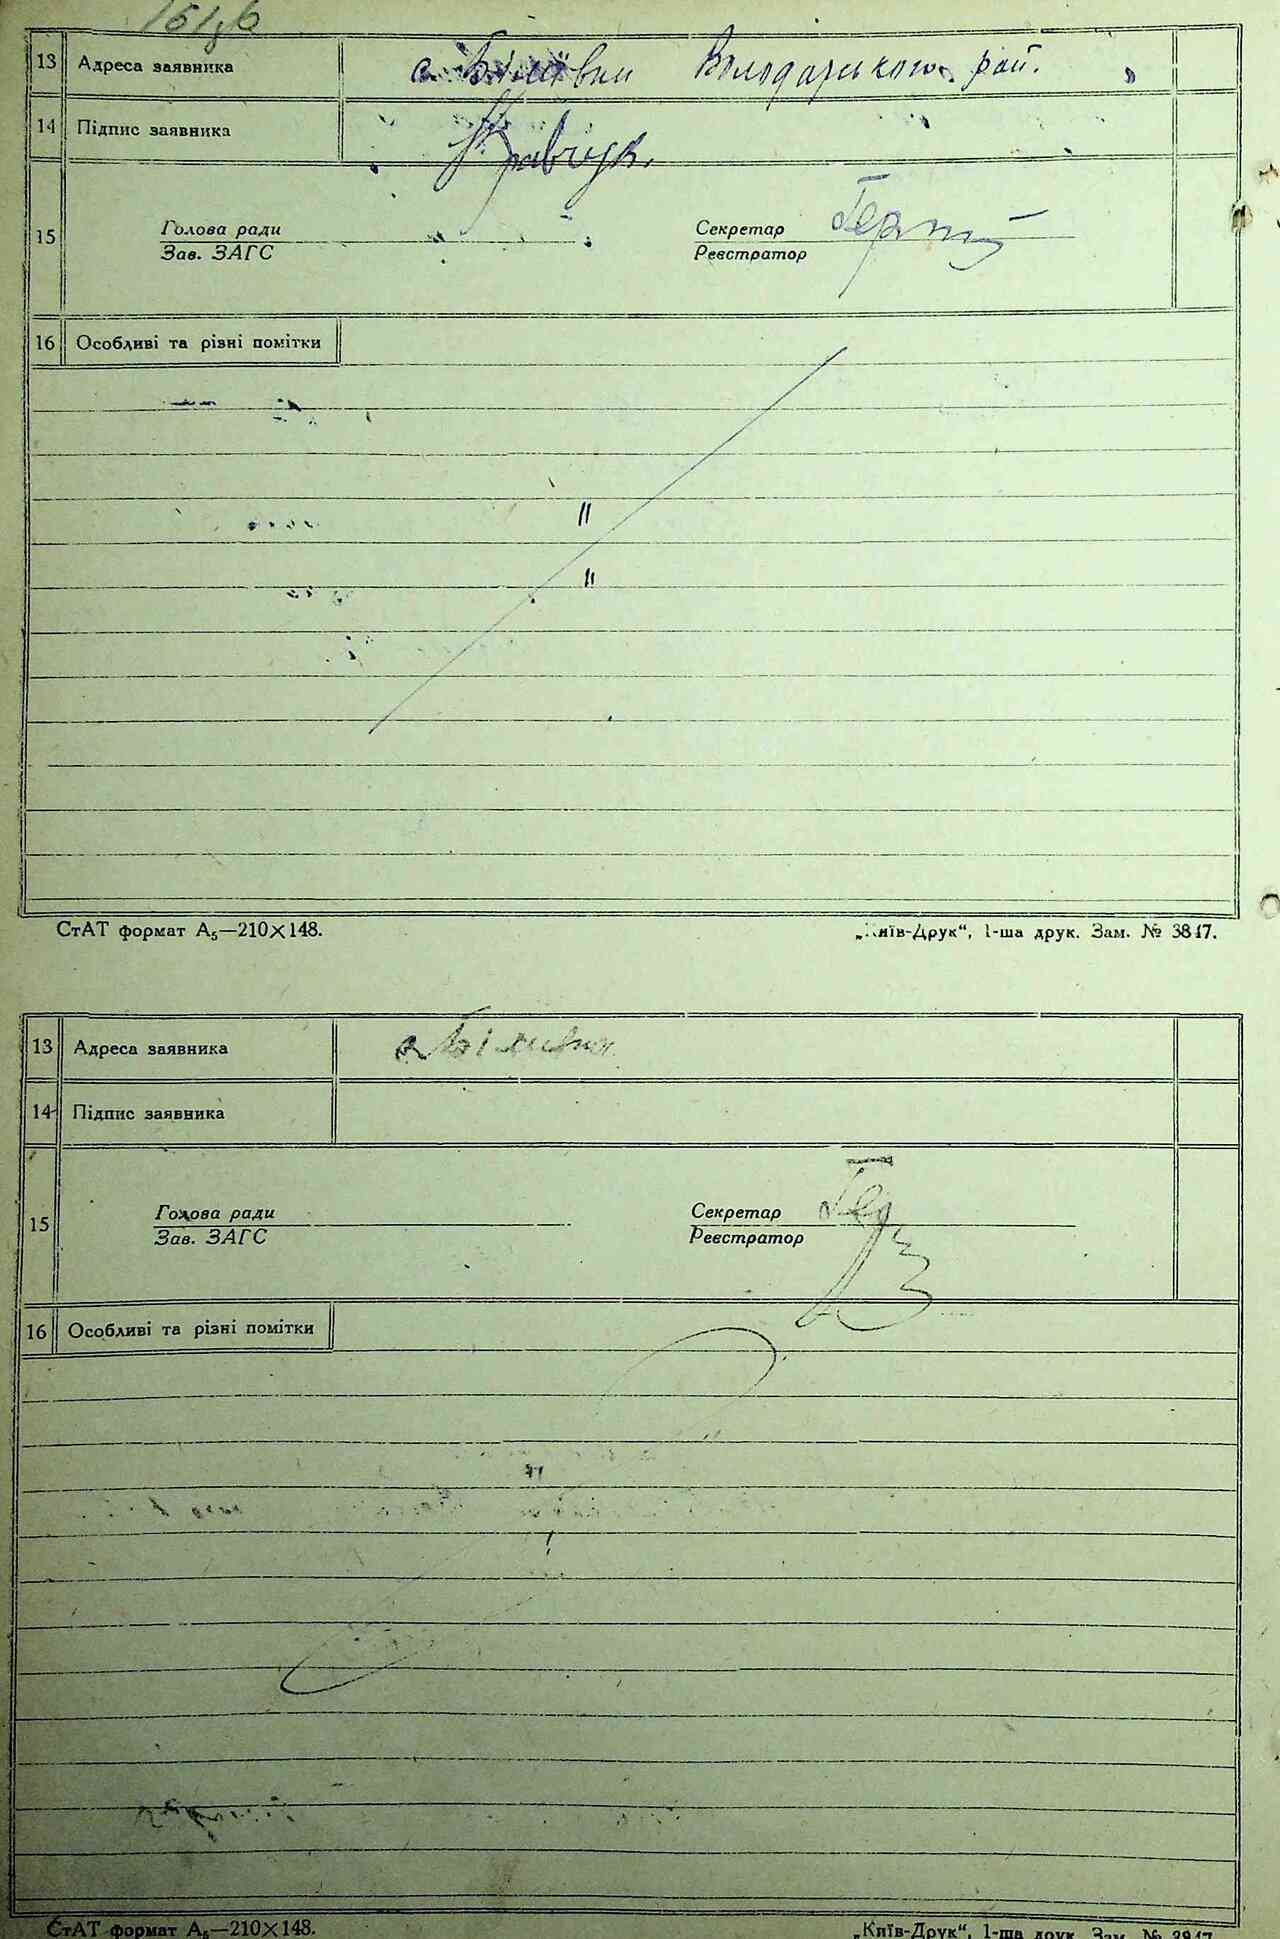 161зв
13 Адреса заявника с. Біліївки Володарського рай.
14 Підпис заявника Кравчук.
15 Голова ради Секретар
Зав. ЗАГС Реєстратор
16 Особливі та різні помітки
"
"
СтАТ формат А5—210×148. „Київ-Друк“, 1-ша друк. Зам. № 3847.
13 Адреса заявника с.
14 Підпис заявника
15 Голова ради Секретар
Зав. ЗАГС Реєстратор
16 Особливі та різні помітки
"
СтАТ формат А5—210×148. „Київ-Друк“, 1-ша друк. Зам. № 3847.